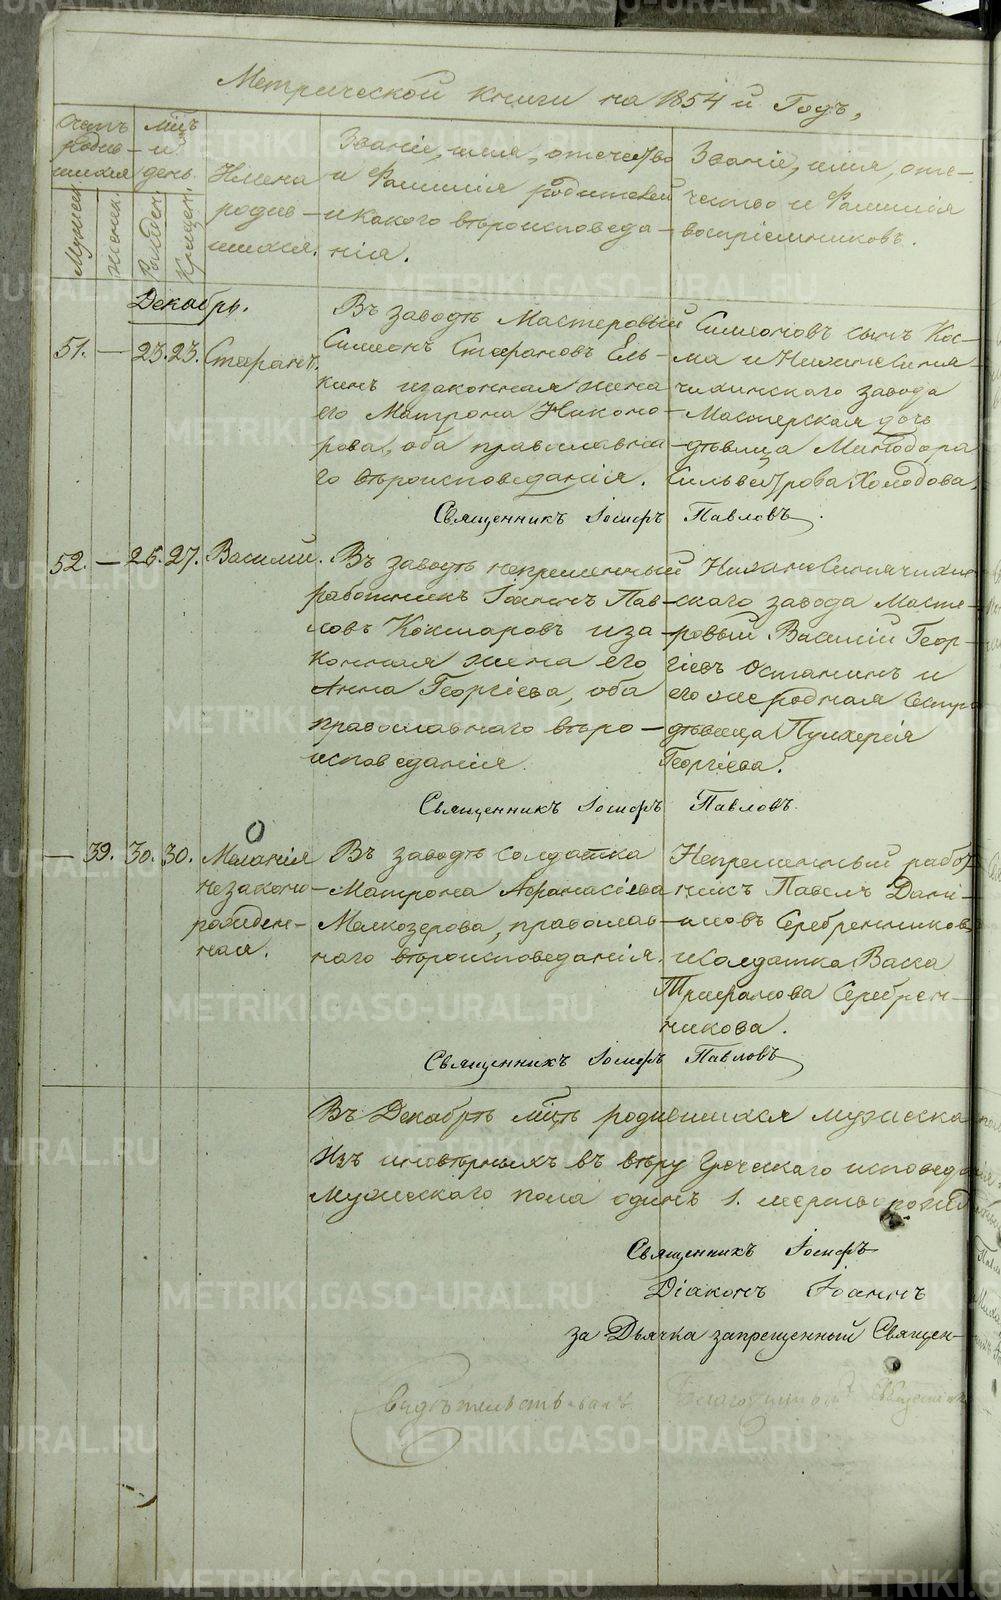 Метрической книги на 1854й Годъ,
Счетъ родив-шихся
Мужеск.
Женск.
Мѣц. и день.
Рожден.
Крещен.
Имена родив-шихся.
Званіе, имя, отечество
и Фамилія родителей
и какого вѣроисповеда-
нія.
Званіе, имя, оте-
чество и Фамилія
воспріемниковъ.
Декабрь.
51. — 23. 23. Стефанъ.
Въ заводѣ Мастеровый
Симеонъ Стефановъ Ель-
кинъ и законная жена
его Матрона Никоно-
рова, оба православна-
го вѣроисповеданія.
Симеоновъ сынъ Кос-
ма и Нижнесиня-
чихинскаго завода
Мастерская дочь
дѣвица Минодора
Сильвестрова Холодова.
Священникъ Іосифъ Павловъ.
52. — 26. 27. Василій.
Въ заводѣ непременный
работникъ Іоаннъ Пав-
ловъ Кокшаровъ и за-
конная жена его
Анна Георгіева, оба
православнаго вѣро-
исповеданія.
Нижнесинячихин-
скаго завода Масте-
ровый Василій Геор-
гіевъ Останинъ и
его же родная сестра
дѣвица Пулхерія
Георгіева.
Священникъ Іосифъ Павловъ.
— 39. 30. 30. Меланія
незаконно-
рожден-
ная.
Въ заводѣ солдатка
Матрона Афанасіева
Мелкозерова, православ-
наго вѣроисповеданія.
Непременный работ-
никъ Павелъ Дані-
иловъ Серебренниковъ
и Солдатка Васса
Трифанова Серебрен-
никова.
Священникъ Іосифъ Павловъ
Въ Декабрѣ мцѣ родившихся мужеска
Изъ иновѣрныхъ въ вѣру Греческаго исповед
Мужескаго пола одинъ 1. мертворожд
Священникъ Іосифъ
Діаконъ Іоаннъ
за Дьячка запрещенный Священ-
Свидѣтельствовалъ Благочинный Священникъ
METRIKI.GASO-URAL.RU